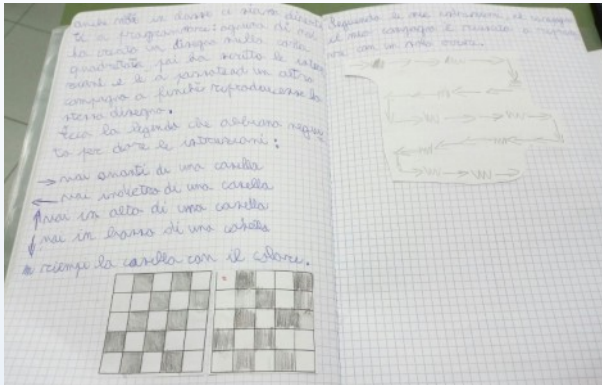 anche noi in classe a
te a programmare: ognuno di noi
ha creato un disegno nella carta
quadrettata poi ha scritto le
e le a passate ad un altro
compagno a finché riproducesse lo
stesso disegno.
Ecco la legenda che abbiamo
to per dare le istruzioni:
→ vai avanti di una casella
← vai indietro di una casella
↑ vai in alto di una casella
↓ vai in basso di una casella
riempi la casella con il colore.
Seguendo le mie istruzioni, il
il mio compagno è riuscito a